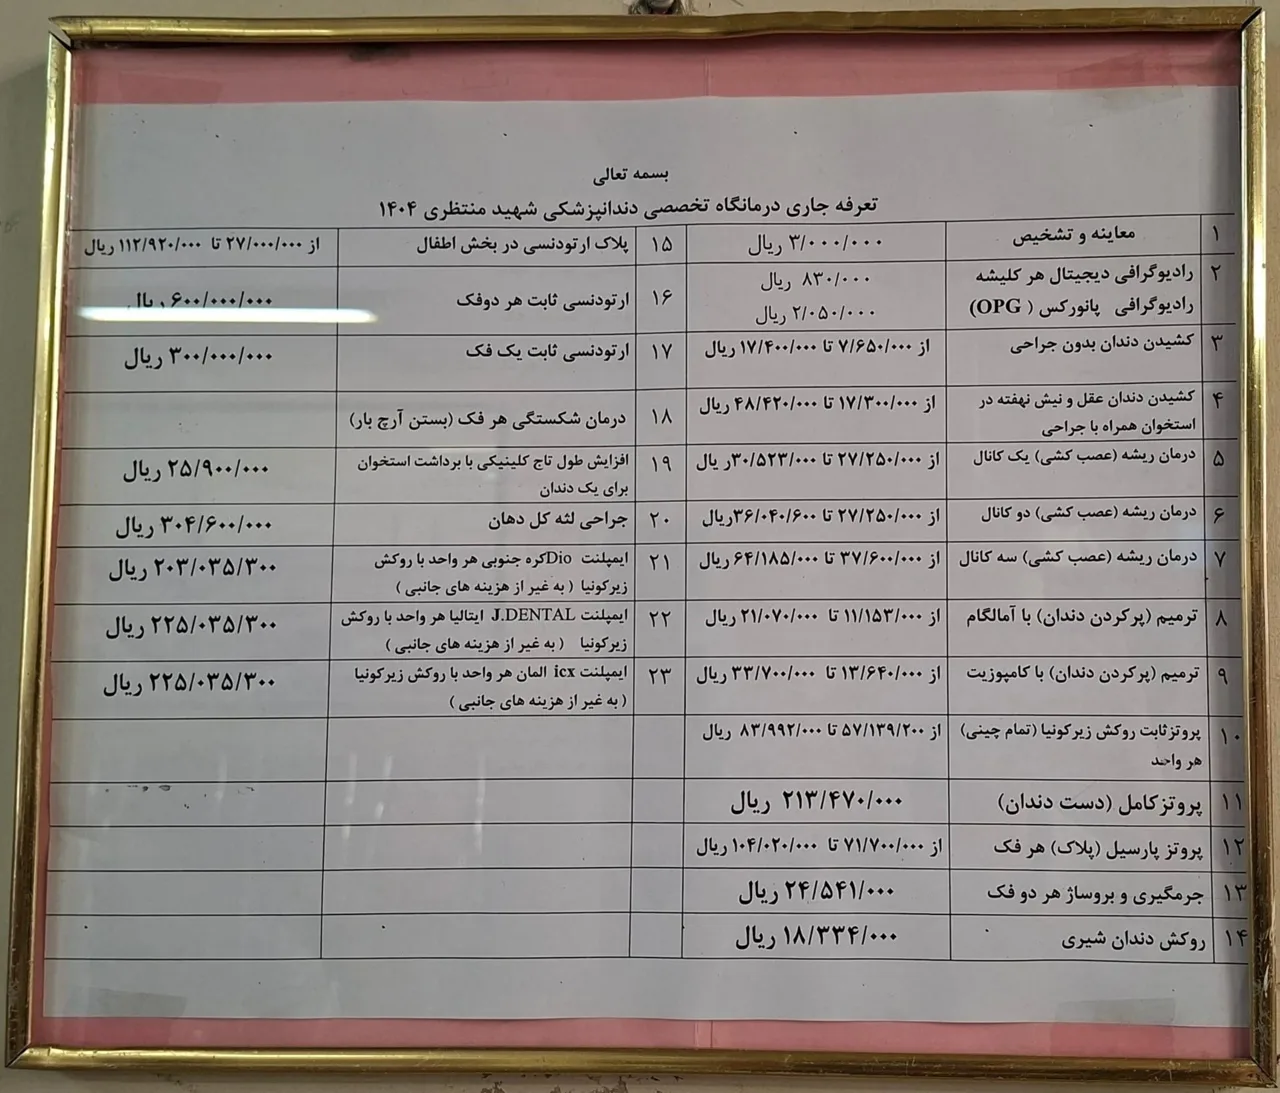 بسمه تعالی
تعرفه جاری درمانگاه تخصصی دندانپزشکی شهید منتظری ۱۴۰۴
۱ معاینه و تشخیص ۳/۰۰۰/۰۰۰ ریال
۲ رادیوگرافی دیجیتال هر کلیشه ۸۳۰/۰۰۰ ریال
رادیوگرافی پانورکس ( OPG) ۲/۰۵۰/۰۰۰ ریال
۳ کشیدن دندان بدون جراحی از ۷/۶۵۰/۰۰۰ تا ۱۷/۴۰۰/۰۰۰ ریال
۴ کشیدن دندان عقل و نیش نهفته در از ۱۷/۳۰۰/۰۰۰ تا ۴۸/۴۲۰/۰۰۰ ریال
استخوان همراه با جراحی
۵ درمان ریشه (عصب کشی) یک کانال از ۲۷/۲۵۰/۰۰۰ تا ۳۰/۵۲۳/۰۰۰ر یال
۶ درمان ریشه (عصب کشی) دو کانال از ۲۷/۲۵۰/۰۰۰ تا ۳۶/۰۴۰/۶۰۰ریال
۷ درمان ریشه (عصب کشی) سه کانال از ۳۷/۶۰۰/۰۰۰ تا ۶۴/۱۸۵/۰۰۰ ریال
۸ ترمیم (پرکردن دندان) با آمالگام از ۱۱/۱۵۳/۰۰۰ تا ۲۱/۰۷۰/۰۰۰ ریال
۹ ترمیم (پرکردن دندان) با کامپوزیت از ۱۳/۶۴۰/۰۰۰ تا ۳۳/۷۰۰/۰۰۰ ریال
۱۰ پروتزثابت روکش زیرکونیا (تمام چینی) از ۵۷/۱۳۹/۲۰۰ تا ۸۳/۹۹۲/۰۰۰ ریال
هر واحد
۱۱ پروتزکامل (دست دندان) ۲۱۳/۴۷۰/۰۰۰ ریال
۱۲ پروتز پارسیل (پلاک) هر فک از ۷۱/۷۰۰/۰۰۰ تا ۱۰۴/۰۲۰/۰۰۰ ریال
۱۳ جرمگیری و بروساژ هر دو فک ۲۴/۵۴۱/۰۰۰ ریال
۱۴ روکش دندان شیری ۱۸/۳۳۴/۰۰۰ ریال
۱۵ پلاک ارتودنسی در بخش اطفال از ۲۷/۰۰۰/۰۰۰ تا ۱۱۲/۹۲۰/۰۰۰ ریال
۱۶ ارتودنسی ثابت هر دوفک ۶۰۰/۰۰۰/۰۰۰ ریال
۱۷ ارتودنسی ثابت یک فک ۳۰۰/۰۰۰/۰۰۰ ریال
۱۸ درمان شکستگی هر فک (بستن آرچ بار)
۱۹ افزایش طول تاج کلینیکی با برداشت استخوان ۲۵/۹۰۰/۰۰۰ ریال
برای یک دندان
۲۰ جراحی لثه کل دهان ۳۰۴/۶۰۰/۰۰۰ ریال
۲۱ ایمپلنت Dioکره جنوبی هر واحد با روکش ۲۰۳/۰۳۵/۳۰۰ ریال
زیرکونیا ( به غیر از هزینه های جانبی )
۲۲ ایمپلنت J.DENTAL ایتالیا هر واحد با روکش ۲۲۵/۰۳۵/۳۰۰ ریال
زیرکونیا ( به غیر از هزینه های جانبی )
۲۳ ایمپلنت icx المان هر واحد با روکش زیرکونیا ۲۲۵/۰۳۵/۳۰۰ ریال
( به غیر از هزینه های جانبی )